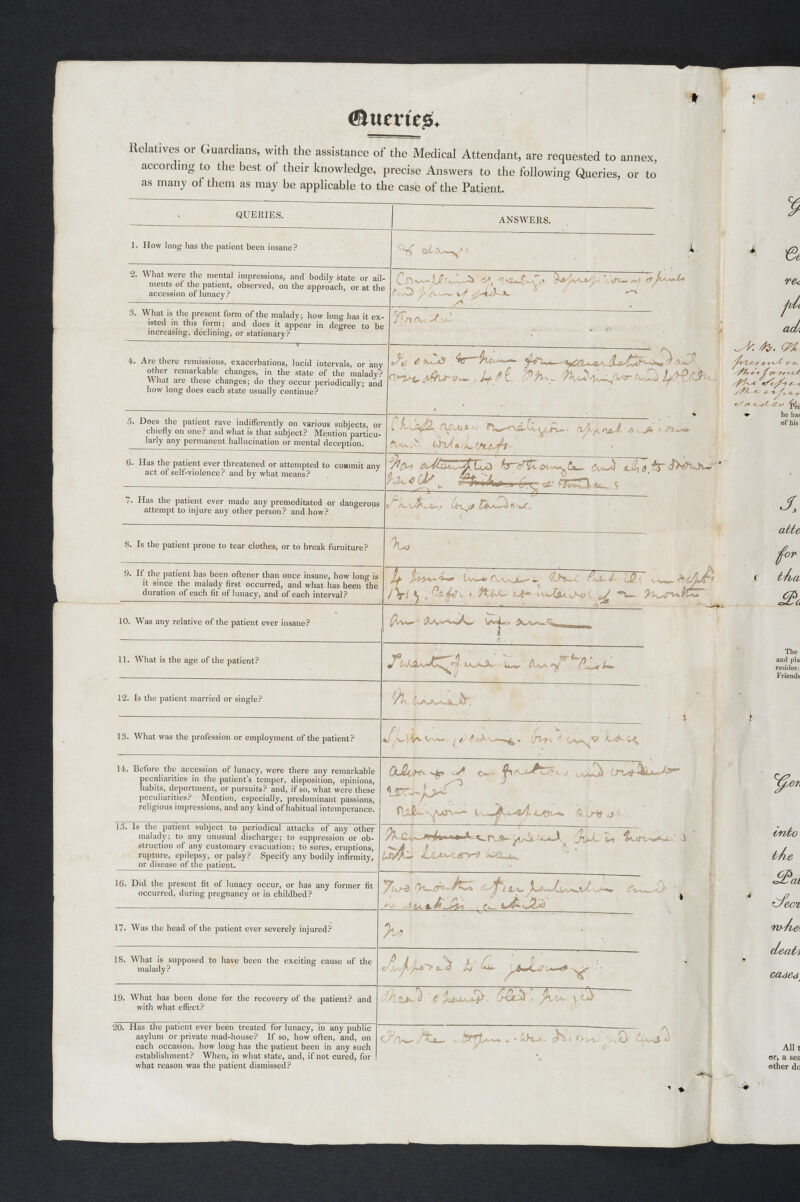 Queries.
Relatives or Guardians, with the assistance of the Medical Attendant, are requested to annex,
according to the best of their knowledge, precise Answers to the following Queries, or to
as many of them as may be applicable to the case of the Patient.
QUERIES.
ANSWERS.
1. How long has the patient been insane?
8 days
2. What were the mental impressions, and bodily state or ail-
ments of the patient, observed, on the approach, or at the
accession of lunacy?
Complained of vertigo depression of spirits
and pain of side
3. What is the present form of the malady; how long has it ex-
isted in this form; and does it appear in degree to be
increasing, declining, or stationary?
4. Are there remissions, exacerbations, lucid intervals, or any
other remarkable changes, in the state of the malady?
What are these changes; do they occur periodically; and
how long does each state usually continue?
Is said to have four exacerbations daily
5. Does the patient rave indifferently on various subjects, or
chiefly on one? and what is that subject? Mention particu-
larly any permanent hallucination or mental deception.
Chiefly raves on religion, apparitions
and witchcraft
6. Has the patient ever threatened or attempted to commit any
act of self-violence? and by what means?
Has attempted to strangle and also to drown
herself.
7. Has the patient ever made any premeditated or dangerous
attempt to injure any other person? and how?
Strikes bystanders
8. Is the patient prone to tear clothes, or to break furniture?
No
9. If the patient has been oftener than once insane, how long is
it since the malady first occurred, and what has been the
duration of each fit of lunacy, and of each interval?
4 times insane - was last ill in Septr
1819. Before that at intervals of months
10. Was any relative of the patient ever insane?
An aunt insane
11. What is the age of the patient?
Twenty five in Augst last
12. Is the patient married or single?
Married.
13. What was the profession or employment of the patient?
binding shoes
14. Before the accession of lunacy, were there any remarkable
peculiarities in the patient's temper, disposition, opinions,
habits, deportment, or pursuits? and, if so, what were these
peculiarities? Mention, especially, predominant passions,
religious impressions, and any kind of habitual intemperance.
Always of a fractious and violent
temper
religious impressions above
15. Is the patient subject to periodical attacks of any other
malady; to any unusual discharge; to suppression or ob-
struction of any customary evacuation; to sores, eruptions,
rupture, epilepsy, or palsy? Specify any bodily infirmity,
or disease of the patient.
regular, but is troubled
with Leucorrhoea
16. Did the present fit of lunacy occur, or has any former fit
occurred, during pregnancy or in childbed?
Two months after parturition and
is suckling a child
17. Was the head of the patient ever severely injured?
No
18. What is supposed to have been the exciting cause of the
malady?
Supposed to be jealousy
19. What has been done for the recovery of the patient? and
with what effect?
Head shaved. bled. purged
20. Has the patient ever been treated for lunacy, in any public
asylum or private mad-house? If so, how often, and, on
each occasion, how long has the patient been in any such
establishment? When, in what state, and, if not cured, for
what reason was the patient dismissed?
In the Asylum. Was dismissed cured
N. B.
he has
of his
I,
atte
for
tha
The
and pla
resides;
Friends
into
the
death
cases
All t
or, a sea
other do